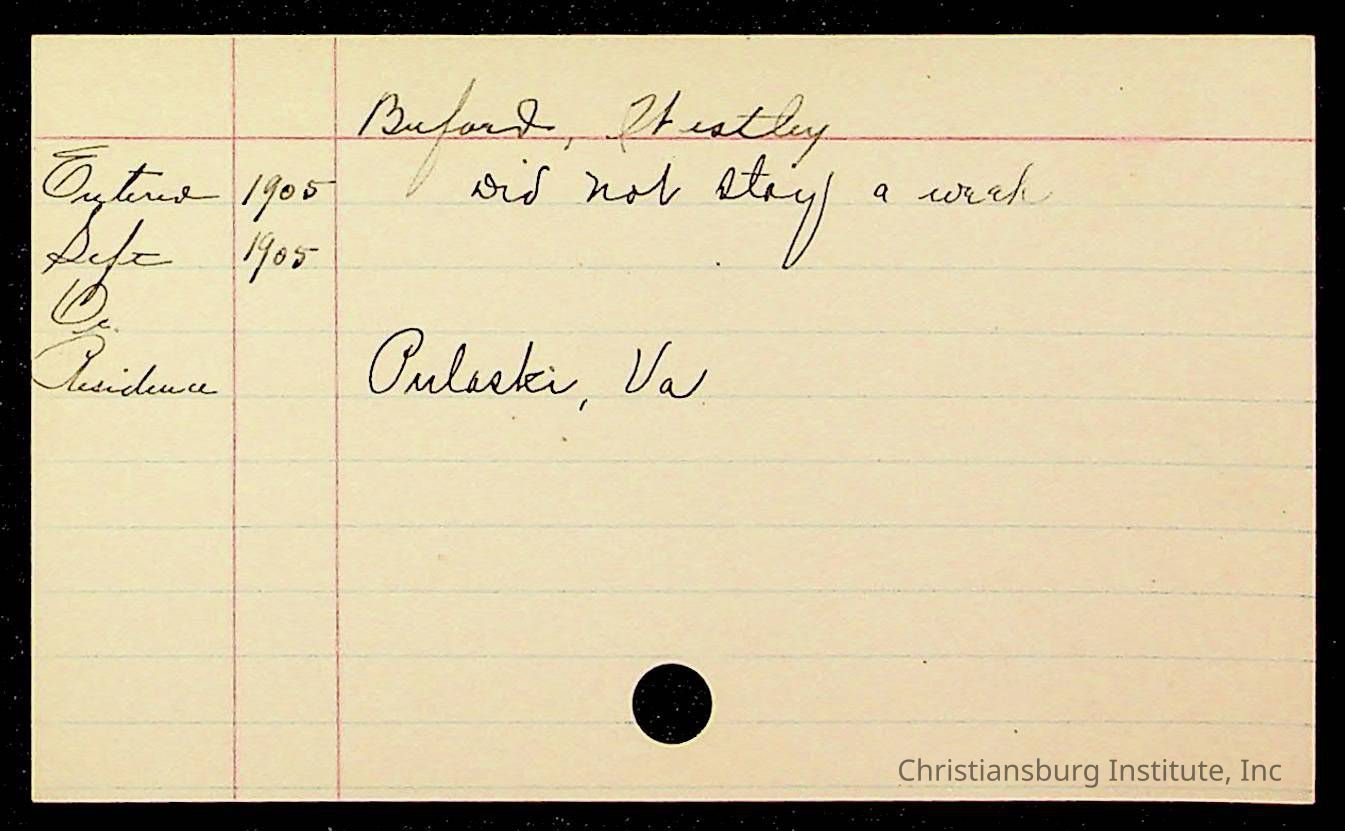 Buford, Westley
Entered 1905 did not stay a week
Left 1905
Residence Pulaski, Va
Christiansburg Institute, Inc